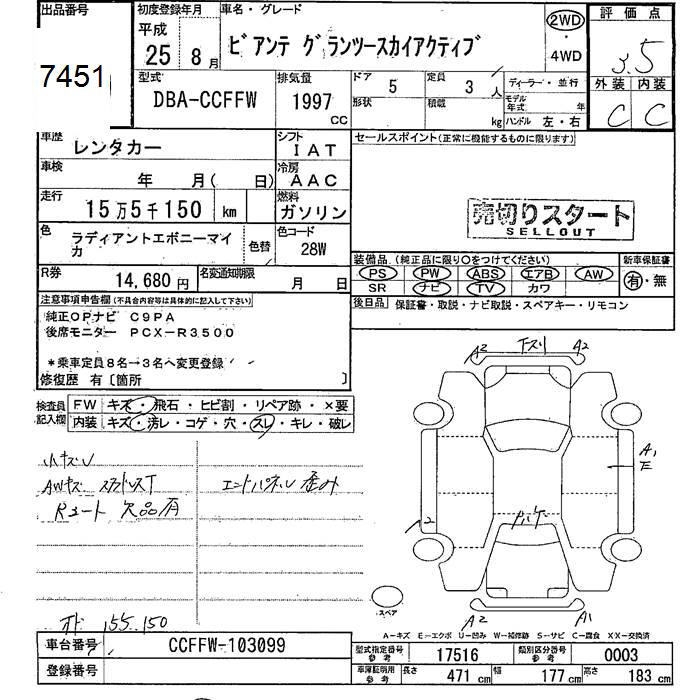 出品番号
7451
初度登録年月
平成
25年 8月
車名・グレード
ビアンテ グランツースカイアクティブ
2WD
・
4WD
評価点
3.5
外装 内装
C C
型式
DBA-CCFFW
排気量
1997
CC
ドア
5
定員
3 人
ディーラー・並行
形状
積載
kg
モデル年式 年
ハンドル 左・右
車歴
レンタカー
シフト
IAT
車検
年 月( 日)
冷房
AAC
走行
15万5千150 km
燃料
ガソリン
色
ラディアントエボニーマイカ
色替
色コード
28W
R券
14,680円
名変通知期限
月 日
セールスポイント(正常に機能するものに限ります)
売切りスタート
SELLOUT
装備品(純正品に限り○をつけてください)
新車保証書
PS PW ABS エアB AW
SR ナビ TV カワ
有・無
後日品 保証書・取説・ナビ取説・スペアキー・リモコン
注意事項申告欄(不具合内容等は具体的に記入して下さい)
純正OPナビ C9PA
後席モニター PCX-R3500
*乗車定員8名→3名へ変更登録
修復歴 有〔箇所 〕
検査員記入欄
FW キズ・飛石・ヒビ割・リペア跡・×要
内装 キズ・汚レ・コゲ・穴・スレ・キレ・破レ
小キズU
AWキズ スタッドレスT
Rシート 欠品有
オド 155.150
A2 下スリ A2
A1
E
A2
A2 A1
スペア
A-キズ E-エクボ U-凹み W-補修跡 S-サビ C-腐食 XX-交換済
車台番号
CCFFW-103099
登録番号
型式指定番号 参考
17516
類別区分番号 参考
0003
車庫証明用 参考
長さ 471 cm
幅 177 cm
高さ 183 cm